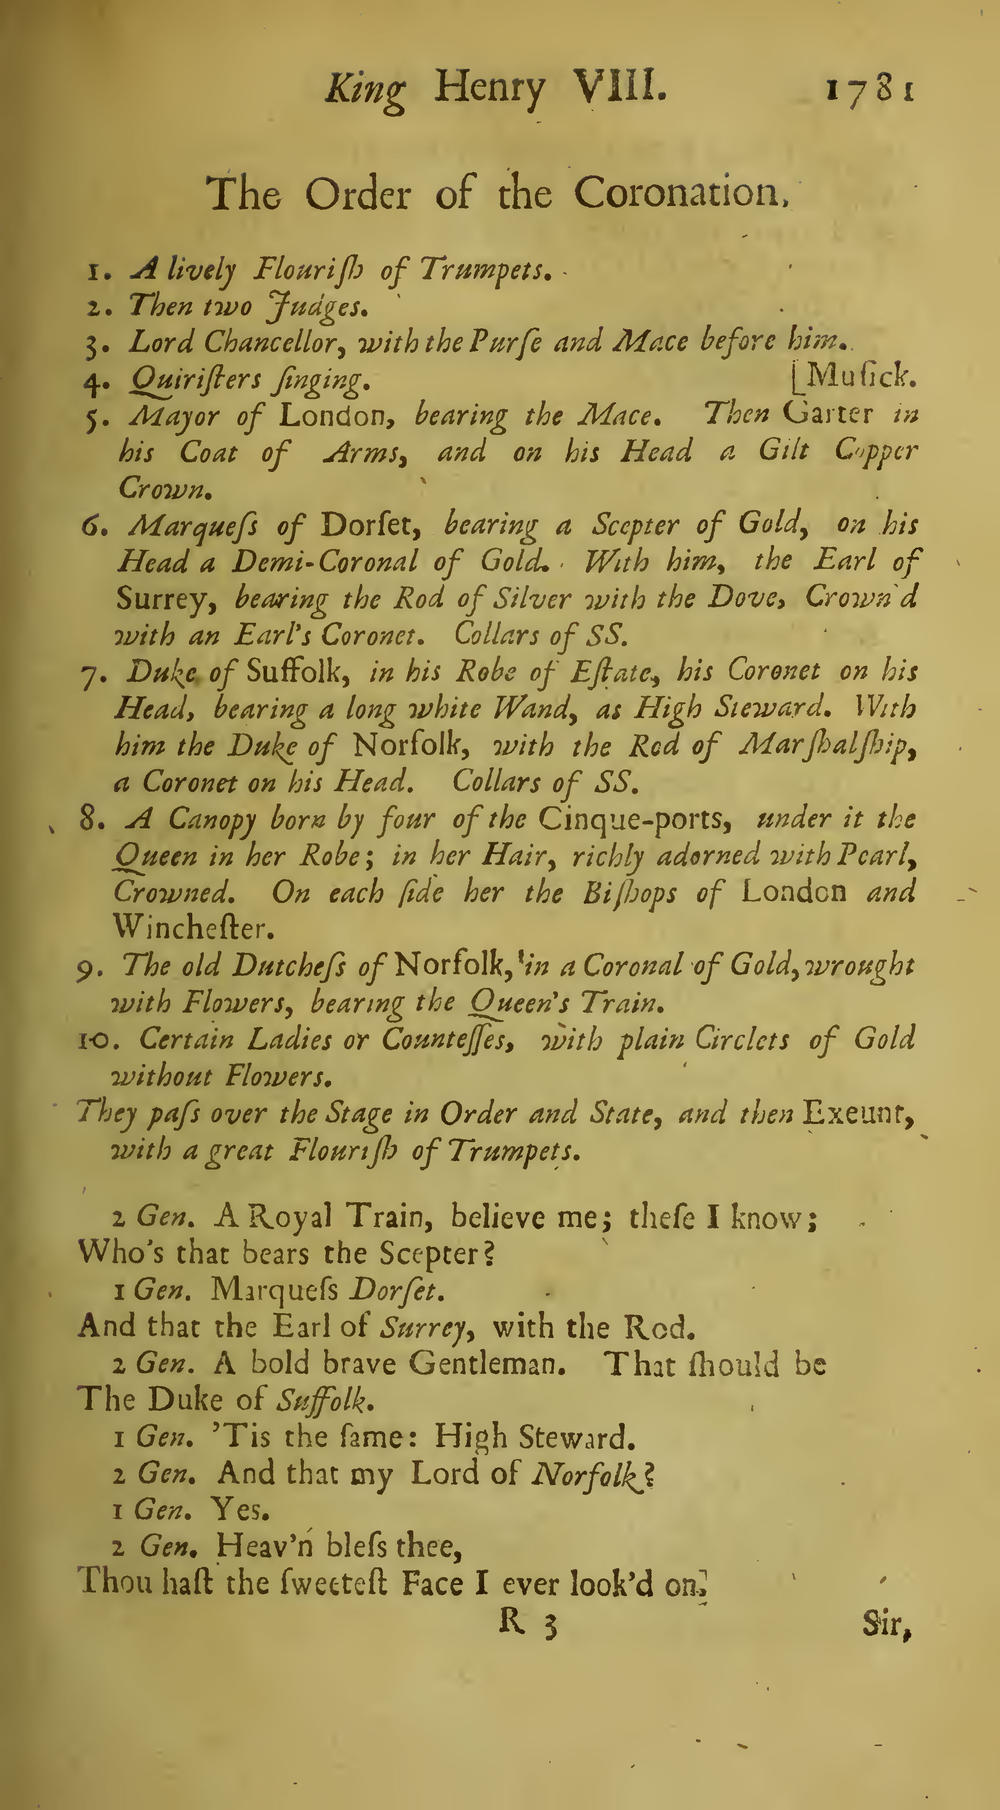 King Henry VIII. 1781
The Order of the Coronation.
1. A lively Flouriſh of Trumpets.
2. Then two Judges.
3. Lord Chancellor, with the Purſe and Mace before him.
4. Quiriſters ſinging. [Muſick.
5. Mayor of London, bearing the Mace. Then Garter in
his Coat of Arms, and on his Head a Gilt Copper
Crown.
6. Marqueſs of Dorſet, bearing a Scepter of Gold, on his
Head a Demi-Coronal of Gold. With him, the Earl of
Surrey, bearing the Rod of Silver with the Dove, Crown'd
with an Earl's Coronet. Collars of SS.
7. Duke of Suffolk, in his Robe of Eſtate, his Coronet on his
Head, bearing a long white Wand, as High Steward. With
him the Duke of Norfolk, with the Rod of Marſhalſhip,
a Coronet on his Head. Collars of SS.
8. A Canopy born by four of the Cinque-ports, under it the
Queen in her Robe; in her Hair, richly adorned with Pearl,
Crowned. On each ſide her the Biſhops of London and
Wincheſter.
9. The old Dutcheſs of Norfolk, in a Coronal of Gold, wrought
with Flowers, bearing the Queen's Train.
10. Certain Ladies or Counteſſes, with plain Circlets of Gold
without Flowers.
They paſs over the Stage in Order and State, and then Exeunt,
with a great Flouriſh of Trumpets.
2 Gen. A Royal Train, believe me; theſe I know;
Who's that bears the Scepter?
1 Gen. Marqueſs Dorſet.
And that the Earl of Surrey, with the Rod.
2 Gen. A bold brave Gentleman. That ſhould be
The Duke of Suffolk.
1 Gen. 'Tis the ſame: High Steward.
2 Gen. And that my Lord of Norfolk?
1 Gen. Yes.
2 Gen. Heav'n bleſs thee,
Thou haſt the ſweeteſt Face I ever look'd on.
R 3 Sir,